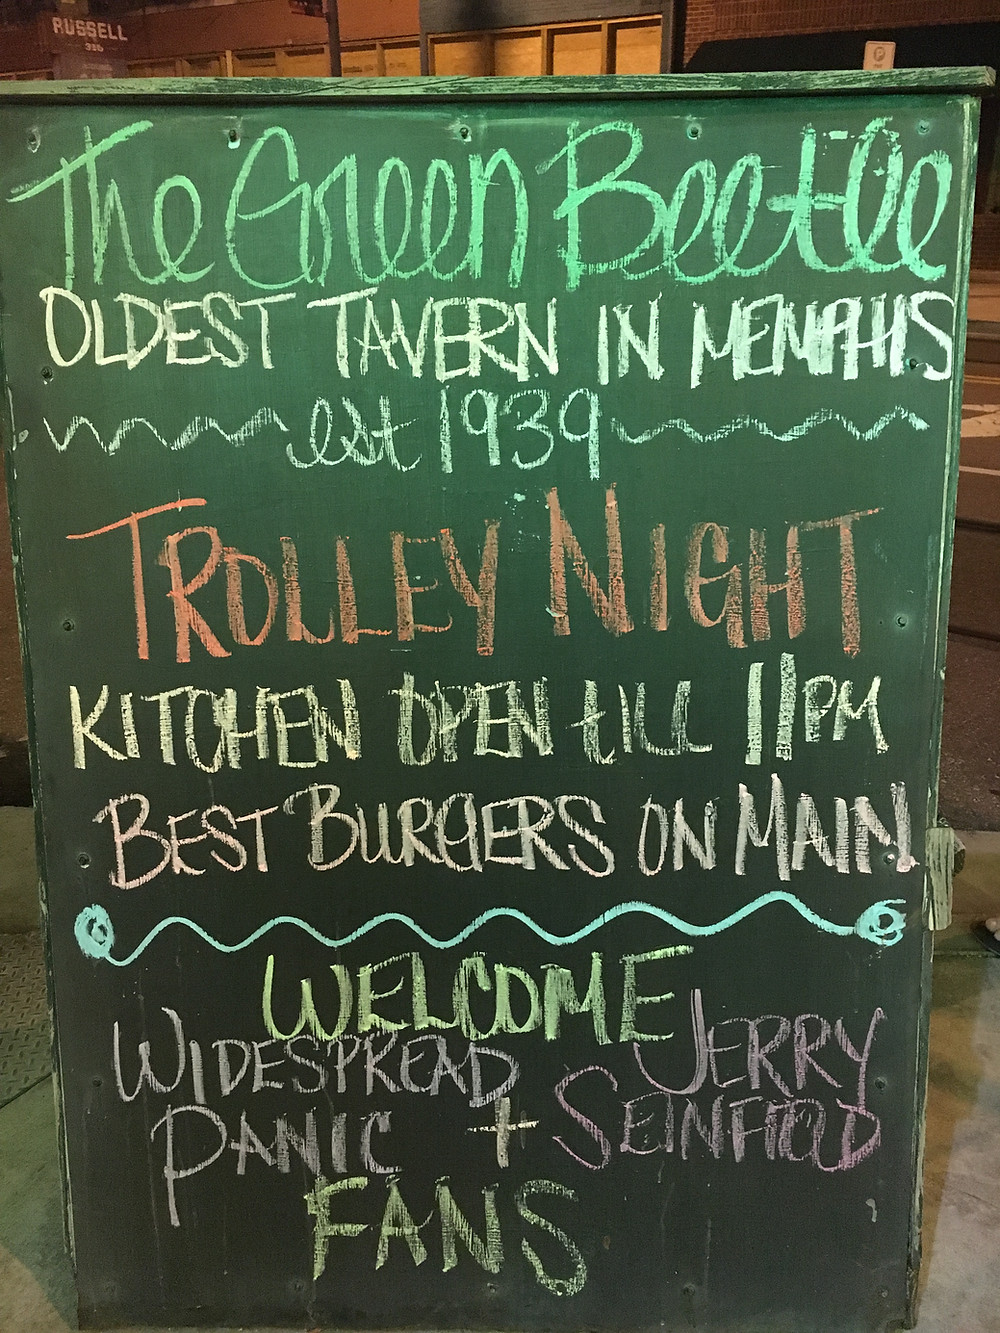 RUSSELL
The Green Beetle
OLDEST TAVERN IN MEMPHIS
est 1939
TROLLEY NIGHT
KITCHEN OPEN tILL 11PM
BEST BURGERS ON MAIN
WELCOME
WIDESPREAD JERRY
PANIC + SEINFIELD
FANS